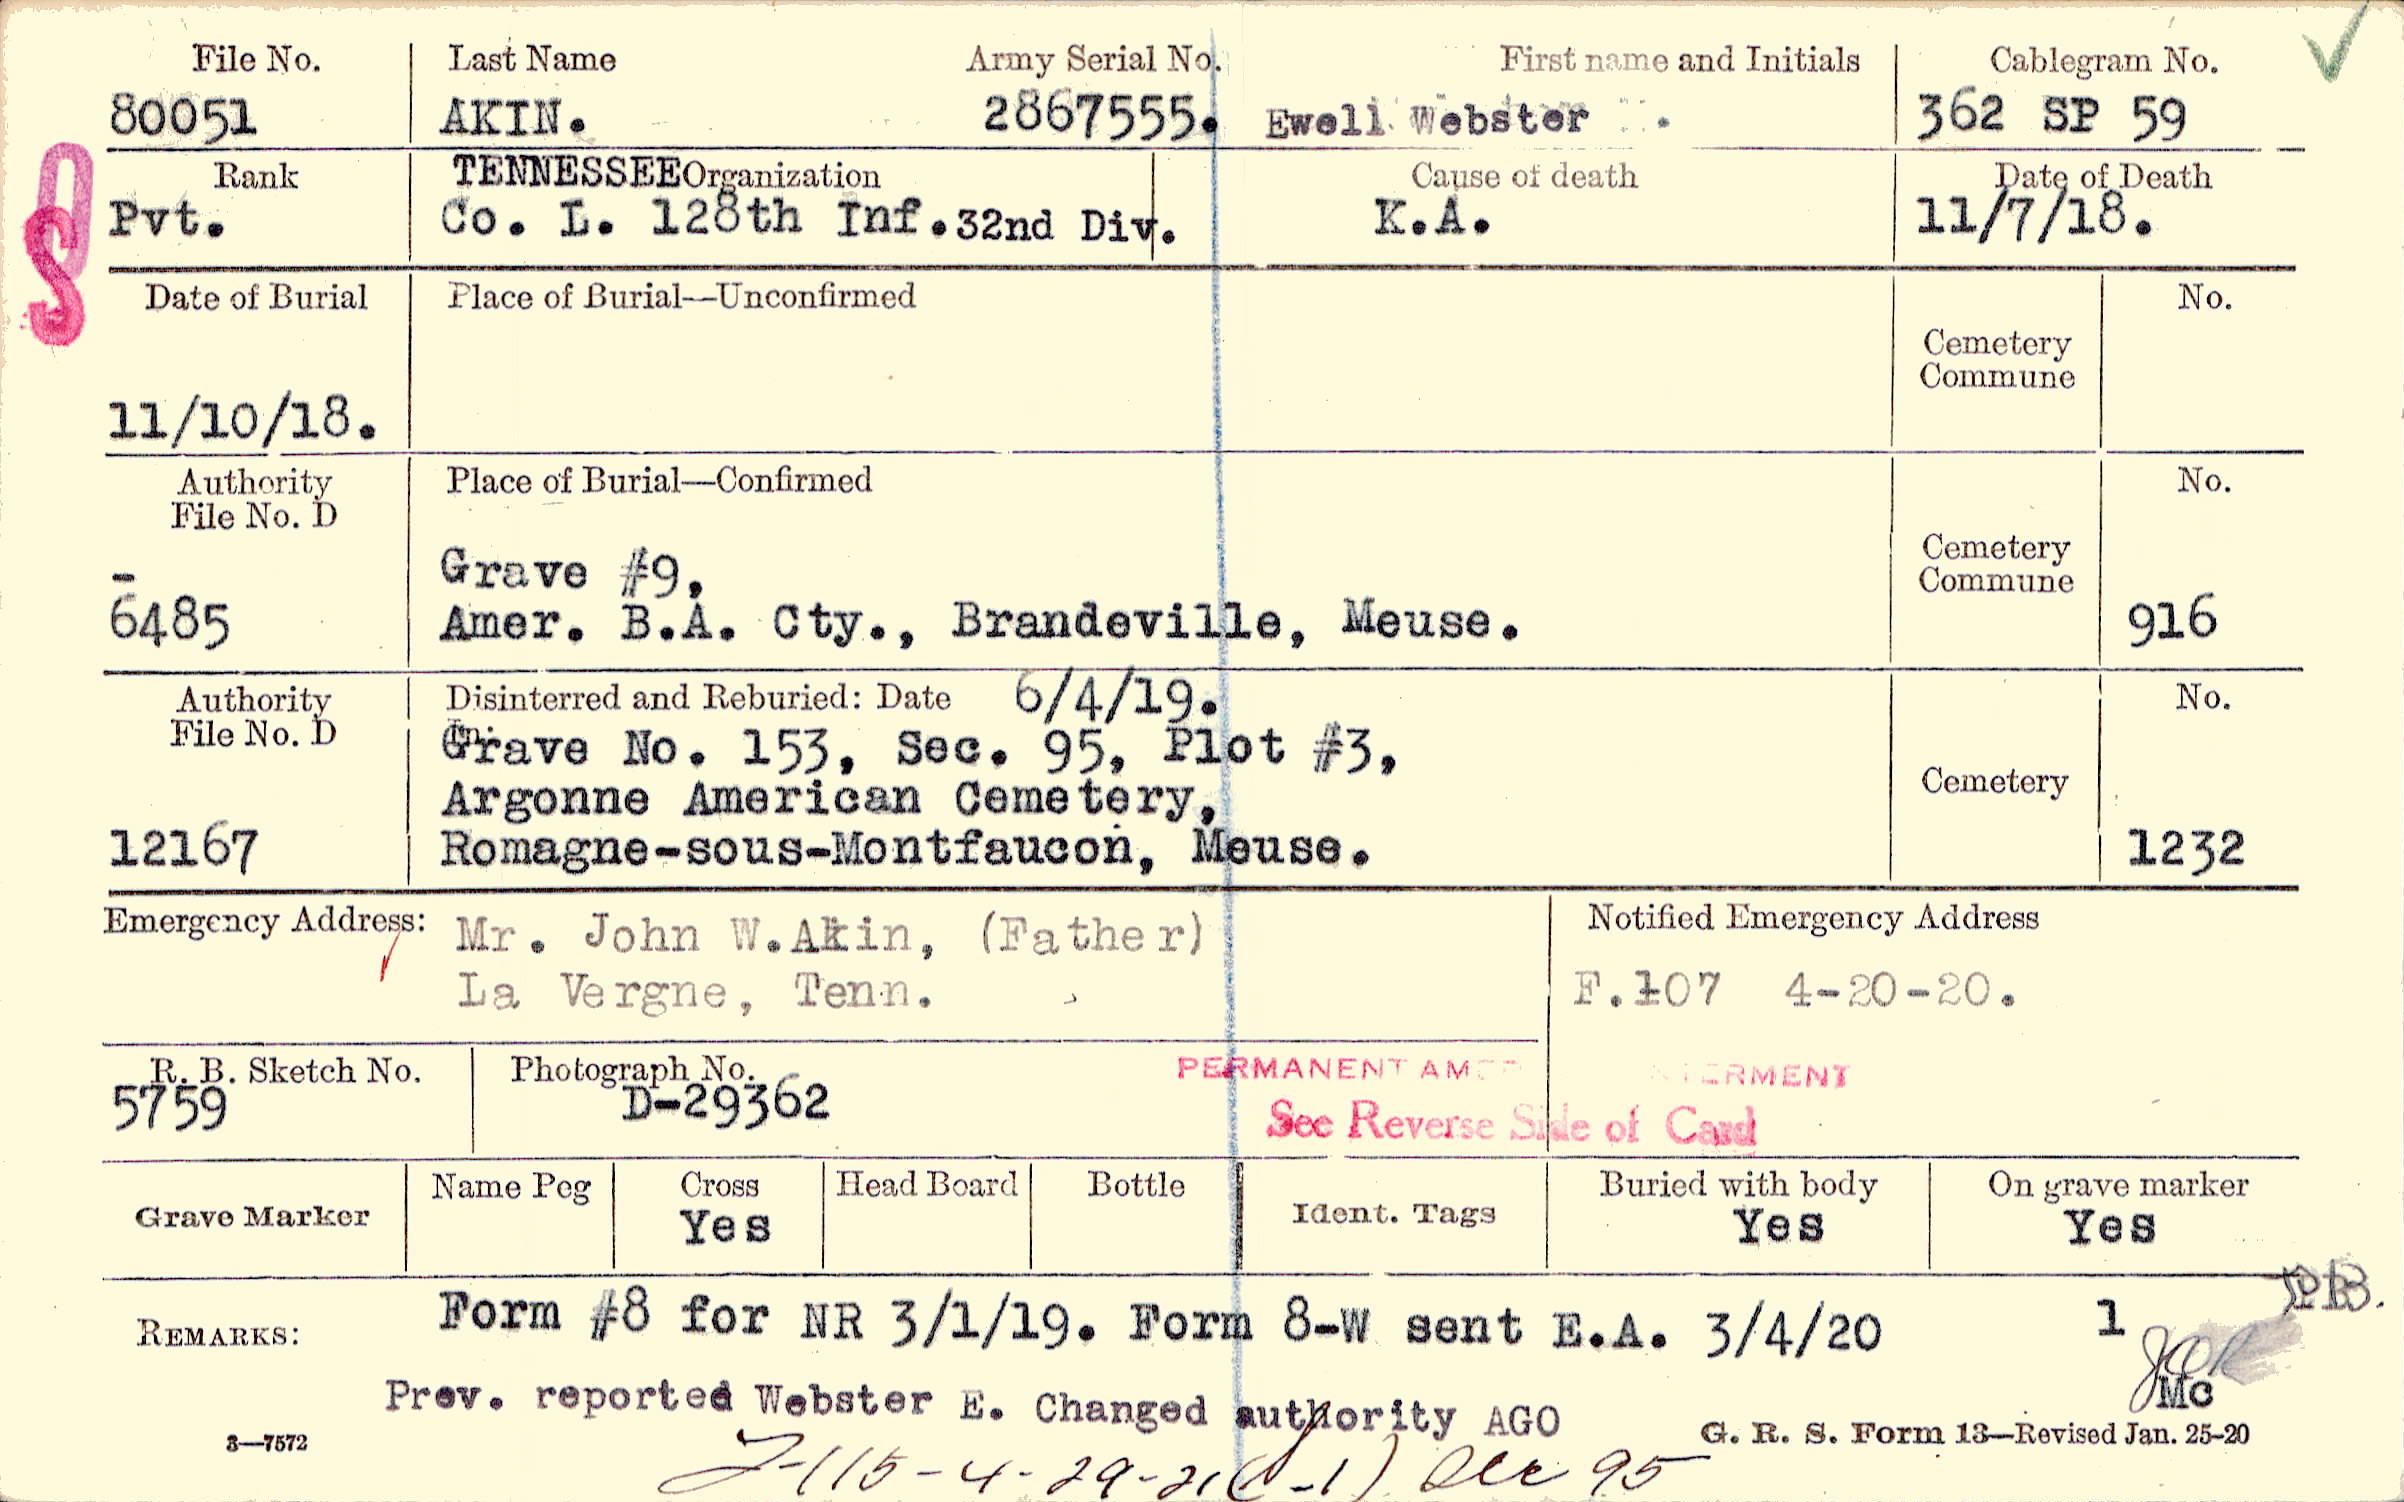 File No. Last Name Army Serial No. First name and Initials Cablegram No.
80051 AKIN. 2867555. Ewell Webster 362 SP 59
Rank TENNESSEE Organization Cause of death Date of Death
Pvt. Co. L. 128th Inf. 32nd Div. K.A. 11/7/18.
OS
Date of Burial Place of Burial—Unconfirmed No.
Cemetery
Commune
11/10/18.
Authority Place of Burial—Confirmed No.
File No. D
Cemetery
Commune
Grave #9,
6485 Amer. B.A. Cty., Brandeville, Meuse. 916
Authority Disinterred and Reburied: Date 6/4/19. No.
File No. D In:
Grave No. 153, Sec. 95, Plot #3,
Argonne American Cemetery, Cemetery
12167 Romagne-sous-Montfaucon, Meuse. 1232
Emergency Address: Mr. John W.Akin, (Father) Notified Emergency Address
La Vergne, Tenn. F.107 4-20-20.
R. B. Sketch No. Photograph No. PERMANENT AMER TERMENT
5759 D-29362 See Reverse Side of Card
Name Peg Cross Head Board Bottle Buried with body On grave marker
Grave Marker Yes Ident. Tags Yes Yes
REMARKS: Form #8 for NR 3/1/19. Form 8-W sent E.A. 3/4/20 1 PB.
JCR
Mc
Prev. reported Webster E. Changed authority AGO
3—7572 G. R. S. Form 13—Revised Jan. 25-20
115-4-29-21 95